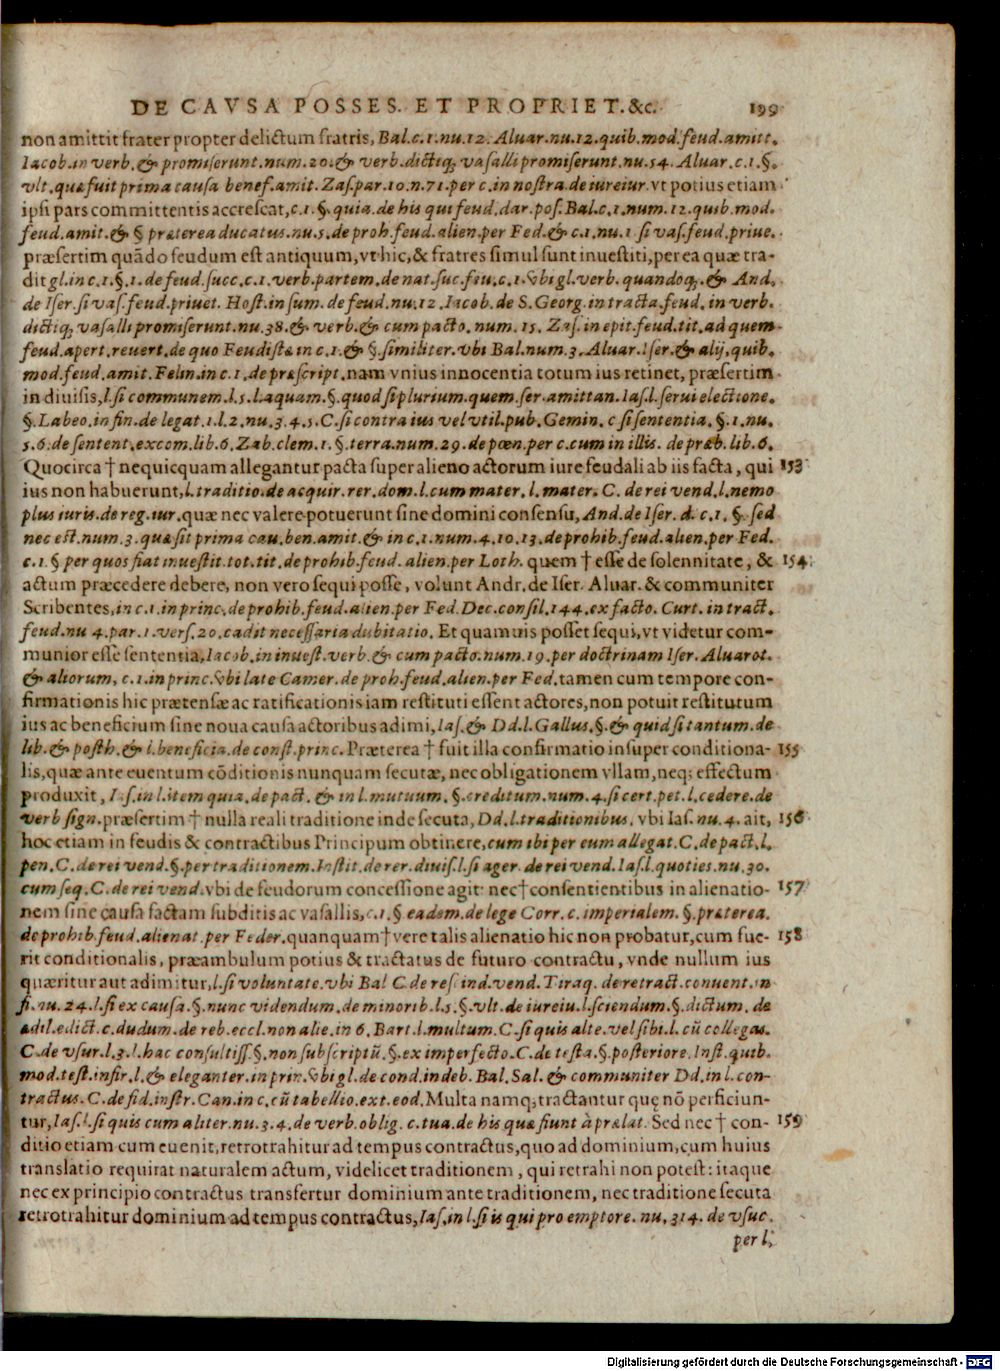 DE CAVSA POSSES. ET PROPRIET. &c. 199
non amittit frater propter delictum fratris, Bal. c. 1. nu. 12. Aluar. nu. 12. quib. mod. feud. amitt.
Iacob. in verb. & promiserunt. num. 20. & verb. dictiq; vasalli promiserunt. nu. 54. Aluar. c. 1. §.
vlt. quæ fuit prima causa benef. amit. Zas. par. 10. n. 71. per c. in nostra. de iureiur. vt potius etiam
ipsi pars committentis accrescat, c. 1. §. quia. de his qui feud. dar. pos. Bal. c. 1. num. 12. quib. mod.
feud. amit. & § præterea ducatus. nu. 5. de proh. feud. alien. per Fed. & c. 1. nu. 1 si vas. feud. priue.
præsertim quãdo feudum est antiquum, vt hic, & fratres simul sunt inuestiti, per ea quæ tra-
dit gl. in c. 1. §. 1. de feud. succ. c. 1. verb. partem. de nat. suc. feu. c. 1. vbi gl. verb. quandoq; & And.
de Iser. si vas. feud. priuet. Host. in sum. de feud. nu. 12. Iacob. de S. Georg. in tracta. feud. in verb.
dictiq; vasalli promiserunt. nu. 38. & verb. & cum pacto. num. 15. Zas. in epit. feud. tit. ad quem
feud. apert. reuert. de quo Feudistæ in c. 1. & §. similiter. vbi Bal. num. 3. Aluar. Iser. & alij, quib.
mod. feud. amit. Felin. in c. 1. de præscript. nam vnius innocentia totum ius retinet, præsertim
in diuisis, l. si communem. l. 5. l. aquam. §. quod si plurium. quem. ser. amittan. Ias. l. serui electione.
§. Labeo. in fin. de legat. 1. l. 2. nu. 3. 4. 5. C. si contra ius vel vtil. pub. Gemin. c si sententia. §. 1. nu.
5. 6. de sentent. excom. lib. 6. Zab. clem. 1. §. terra. num. 29. de pœn. per c. cum in illis. de præb. lib. 6.
Quocirca † nequicquam allegantur pacta super alieno actorum iure feudali ab iis facta, qui 153
ius non habuerunt, l. traditio. de acquir. rer. dom. l. cum mater. l. mater. C. de rei vend. l. nemo
plus iuris. de reg. iur. quæ nec valere potuerunt sine domini consensu, And. de Iser. d. c. 1. §. sed
nec est. num. 3. quæ sit prima cau. ben. amit. & in c. 1. num. 4. 10. 13. de prohib. feud. alien. per Fed.
c. 1. § per quos fiat inuestit. tot. tit. de prohib. feud. alien. per Loth. quem † esse de solennitate, & 154
actum præcedere debere, non vero sequi posse, volunt Andr. de Iser. Aluar. & communiter
Scribentes, in c. 1. in princ. de prohib. feud. alien. per Fed. Dec. consil. 144. ex facto. Curt. in tract.
feud. nu 4. par. 1. vers. 20. cadit necessaria dubitatio. Et quamuis posset sequi, vt videtur com-
munior esse sententia, Iacob. in inuest. verb. & cum pacto. num. 19. per doctrinam Iser. Aluarot.
& aliorum, c. 1. in princ. vbi late Camer. de proh. feud. alien. per Fed. tamen cum tempore con-
firmationis hic prætensæ ac ratificationis iam restituti essent actores, non potuit restitutum
ius ac beneficium sine noua causa actoribus adimi, Ias. & Dd. l. Gallus. §. & quid si tantum. de
lib. & posth. & l. beneficia. de const. princ. Præterea † fuit illa confirmatio insuper conditiona- 155
lis, quæ ante euentum cõditionis nunquam secutæ, nec obligationem vllam, neq; effectum
produxit, Ias. in l. item quia. de pact. & in l. mutuum. §. creditum. num. 4. si cert. pet. l. cedere. de
verb sign. præsertim † nulla reali traditione inde secuta, Dd. l. traditionibus. vbi Ias. nu. 4. ait, 156
hoc etiam in feudis & contractibus Principum obtinere, cum ibi per eum allegat. C. de pact. l.
pen. C. de rei vend. §. per traditionem. Instit. de rer. diuis. l. si ager. de rei vend. Ias. l. quoties. nu. 30.
cum seq. C. de rei vend. vbi de feudorum concessione agit: nec † consentientibus in alienatio- 157
nem sine causa factam subditis ac vasallis, c. 1. § eadem. de lege Corr. c. imperialem. §. præterea.
de prohib. feud. alienat. per Feder. quanquam † vere talis alienatio hic non probatur, cum fue- 158
rit conditionalis, præambulum potius & tractatus de futuro contractu, vnde nullum ius
quæritur aut adimitur, l. si voluntate. vbi Bal C. de rescind. vend. Tiraq. de retract. conuent. in
fi. nu. 24. l. si ex causa. §. nunc videndum. de minorib. l. 5. §. vlt. de iureiu. l. sciendum. §. dictum. de
ædil. edict. c. dudum. de reb. eccl. non alie. in 6. Bart. l. multum. C. si quis alte. vel sibi. l. cũ collegas.
C. de vsur. l. 3. l. hac consultiss. §. non subscriptũ. §. ex imperfecto. C. de testa. §. posteriore. Inst. quib.
mod. test. infir. l. & eleganter. in prin. vbi gl. de cond. indeb. Bal. Sal. & communiter Dd. in l. con-
tractus. C. de fid. instr. Can. in c. cũ tabellio. ext. eod. Multa namq; tractantur quę nõ perficiun-
tur, Ias. l. si quis cum aliter. nu. 3. 4. de verb. oblig. c. tua. de his quæ fiunt à prælat. Sed nec † con- 159
ditio etiam cum euenit, retrotrahitur ad tempus contractus, quo ad dominium, cum huius
translatio requirat naturalem actum, videlicet traditionem, qui retrahi non potest: itaque
nec ex principio contractus transfertur dominium ante traditionem, nec traditione secuta
retrotrahitur dominium ad tempus contractus, Ias. in l. si is qui pro emptore. nu. 314. de vsuc.
per l.
Digitalisierung gefördert durch die Deutsche Forschungsgemeinschaft - DFG